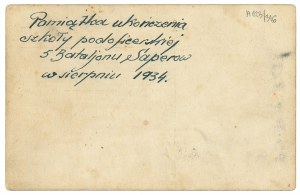 Pamiątka ukończenia
szkoły podoficerskiej
5 Bataljonu Saperów
w sierpniu 1934.